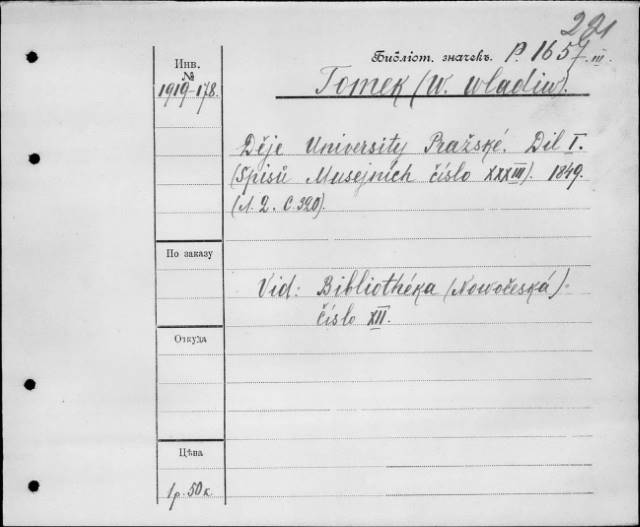 221
Инв.
№
1919-178.
Библіот. значекъ. P. 1657 III.
Tomek (W. Wladiw).
Děje University Pražské. Díl I.
(Spisů Musejních číslo XXXIII). 1849.
(Л. 2. С. 320).
По заказу
Vid: Bibliothéka (Nowočeská).
číslo XII.
Откуда
Цѣна
1 р. 50 к.